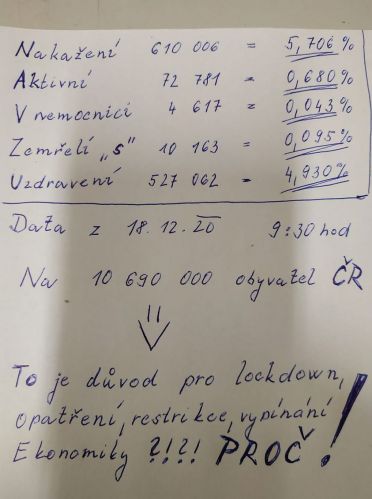 Nakažení 610 006 = 5,706%
Aktivní 72 781 = 0,680%
V nemocnici 4 617 = 0,043%
Zemřelí „s" 10 163 = 0,095%
Uzdravení 527 062 = 4,930%
Data z 18.12.20 9:30 hod
Na 10 690 000 obyvatel ČR
To je důvod pro lockdown,
opatření, restrikce, vypínání
Ekonomiky ?!?! PROČ!